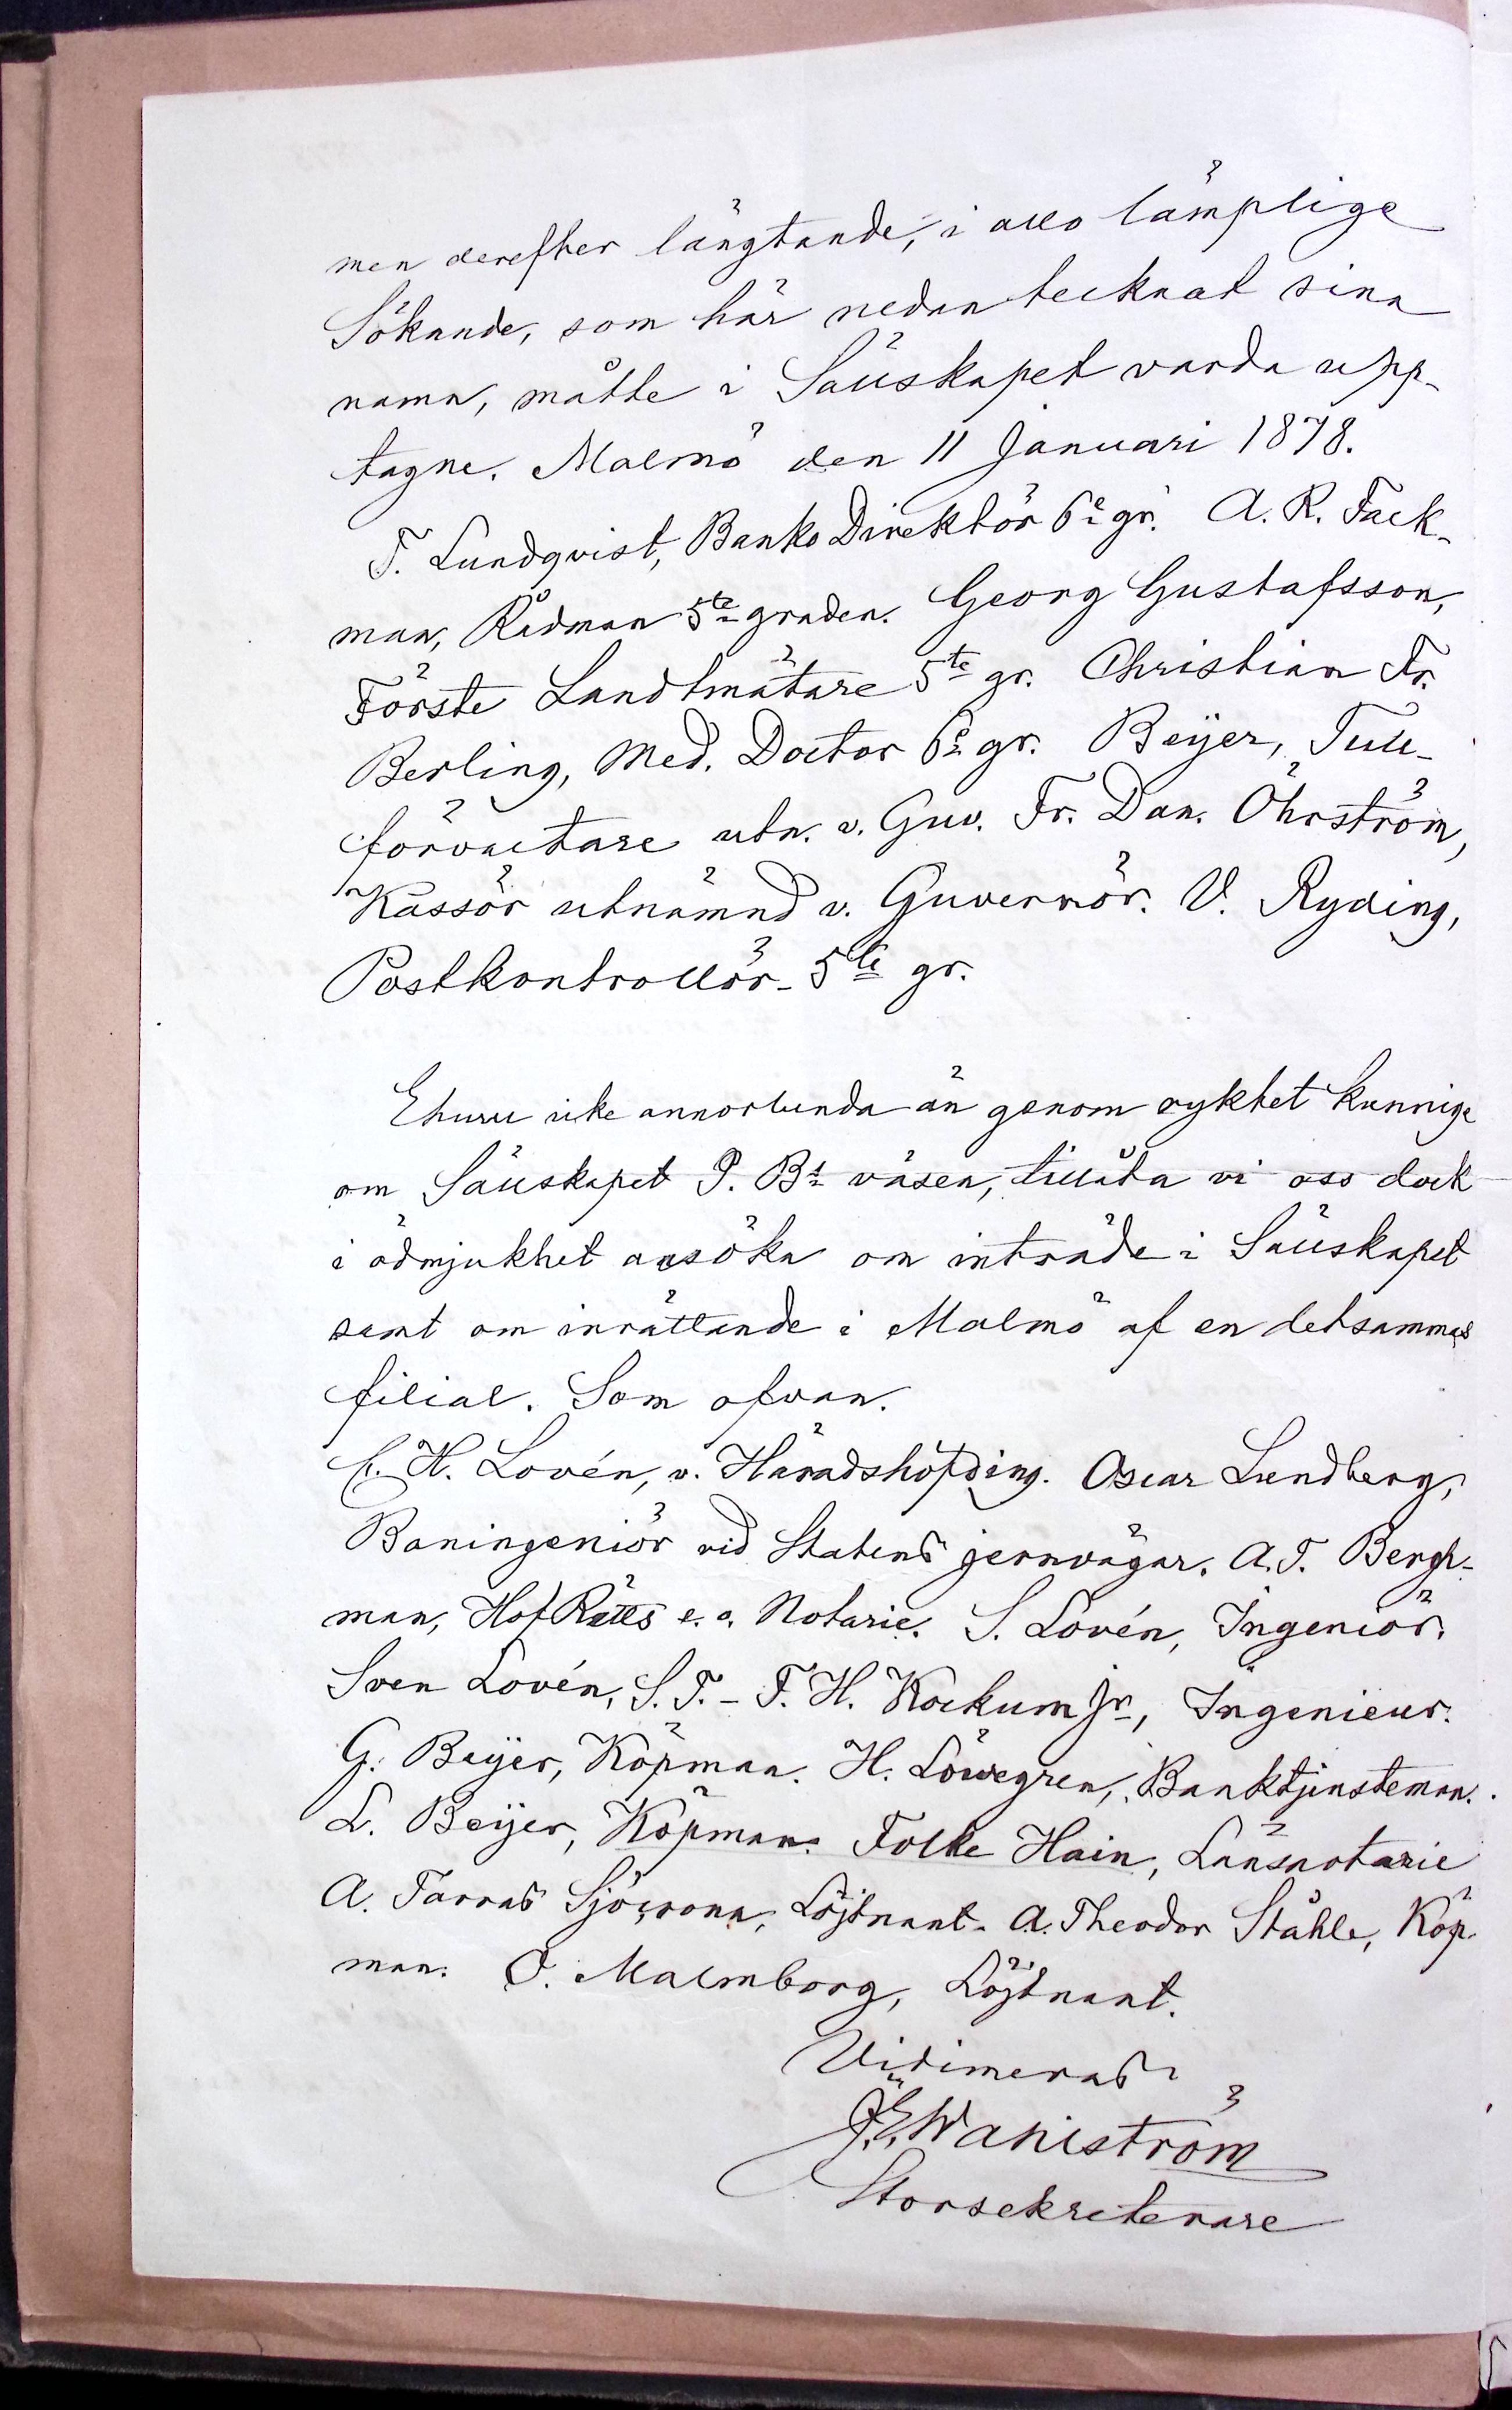 men derefter längtande, i allo lämplige
Sökande, som här nedan tecknat sina
namn, måtte i Sällskapet varda upp-
tagne. Malmö den 11 Januari 1878.
T. Lundqvist, Banko Direktör 6e gr. A. R. Fack-
man, Rådman 5te graden. Georg Gustafsson,
Förste Landtmätare 5te gr. Christian Fr.
Berling, Med. Doctor 6e gr. Beijer, Tull-
förvaltare utn. v. Guv. Fr. Dan. Öhrström,
Kassör utnämnd v. Guvernör. V. Ryding,
Postkontrollör 5te gr.
Ehuru icke annorlunda än genom ryktet kunnige
om Sällskapet P. Bs väsen, tillåta vi oss dock
i ödmjukhet ansöka om inträde i Sällskapet
samt om inrättande i Malmö af en detsammas
filial. Som ofvan.
C. H. Lovén, v. Häradshöfding. Oscar Lundberg,
Baningeniör vid Statens jernvägar. A. T. Bergh-
man, HofRätts e. o. Notarie. S. Lovén, Ingeniör.
Sven Lovén, S. T. - F. H. Kockum Jr, Ingenieur.
G. Beijer, Köpman. H. Löwegren, Banktjensteman.
L. Beijer, Köpman. Folke Hain, Länsnotarie
A. Tarras Sjöcrona, Löjtnant. A. Theodor Ståhle, Köp
man. O. Malmborg, Löjtnant.
Vidimeras
J. E. Wahlström
Storsekreterare